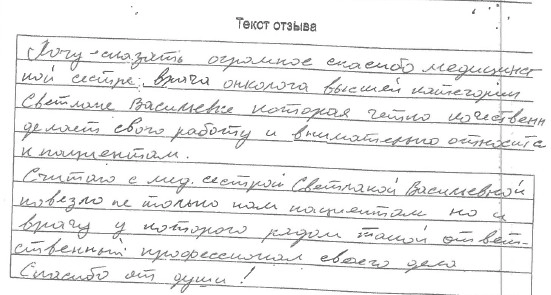 Текст отзыва
Хочу сказать огромное спасибо медицинс
кой сестре врача онколога высшей категории
Светлане Васильевне которая четко качественн
делает свою работу и внимательно относится
к пациентам.
Считаю с мед. сестрой Светланой Васильевной
повезло не только нам пациентам но и
врачу у которого рядом такой ответ-
ственный профессионал своего дела
Спасибо от души!